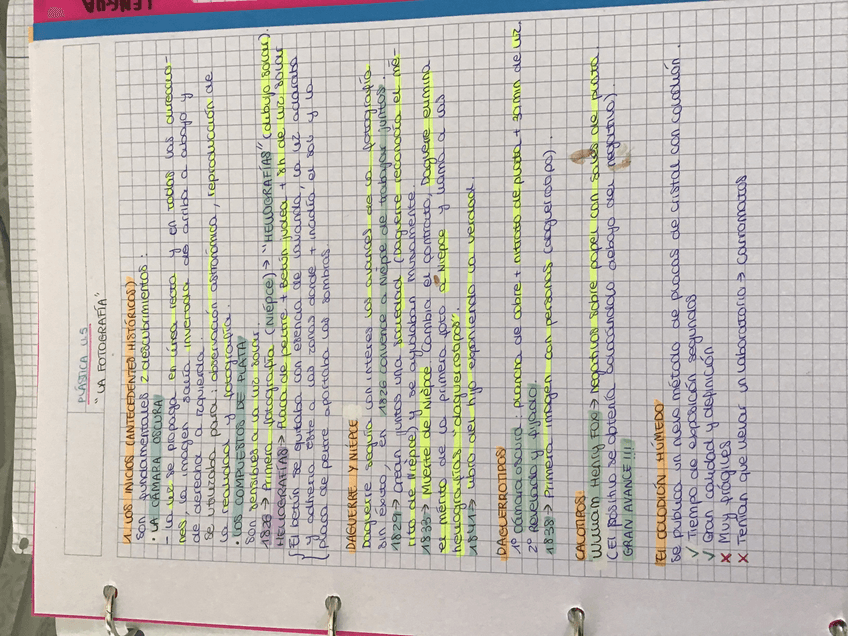 LENGUA
PLÁSTICA U.5
"LA FOTOGRAFÍA"
1. LOS INICIOS (ANTECEDENTES HISTÓRICOS)
Son fundamentales 2 descubrimientos:
• LA CÁMARA OSCURA
- La luz se propaga en línea recta y en todas las direccio-
nes, la imagen salía invertida de arriba a abajo y
de derecha a izquierda.
Se utilizaba para: observación astronómica, reproducción de
la realidad y fotografía.
• LOS COMPUESTOS DE PLATA
Son sensibles a la luz solar.
1826 → Primera fotografía (Niépce) → "HELIOGRAFÍAS" (dibujo solar).
HELIOGRAFÍAS → Placa de peltre + Betún judea + 8h de luz solar
El betún se quitaba con esencia de lavanda, la luz aclaraba
y adhería éste a las zonas donde + incidía el sol y la
placa de peltre aportaba las sombras.
DAGUERRE Y NIÉPCE
Daguerre seguía con interés los avances de la fotografía
sin éxito, en 1826 convence a Niépce de trabajar juntos.
1829 → Crean juntos una sociedad (Daguerre reconocía el mé-
rito de Niépce) y se ayudaban mutuamente.
1833 → Muerte de Niépce. Cambia el contrato, Daguerre elimina
el mérito de la primera foto a Niépce y llama a las
heliografías "daguerrotipos".
1841 → Libro del hijo exponiendo la verdad.
DAGUERROTIPOS
1º Cámara oscura: plancha de cobre + nitrato de plata + 30 min de luz.
2º Revelado y fijado
1838 → Primera imagen con personas (daguerrotipo).
CALOTIPOS
William Henry Fox → negativos sobre papel con sales de plata
(El positivo se obtenía colocándolo debajo del negativo).
GRAN AVANCE!!!
EL COLODIÓN HÚMEDO
Se publica un nuevo método de placas de cristal con colodión.
✓ Tiempo de exposición segundos
✓ Gran calidad y definición
✗ Muy frágiles
✗ Tenían que llevar un laboratorio → Carromatos